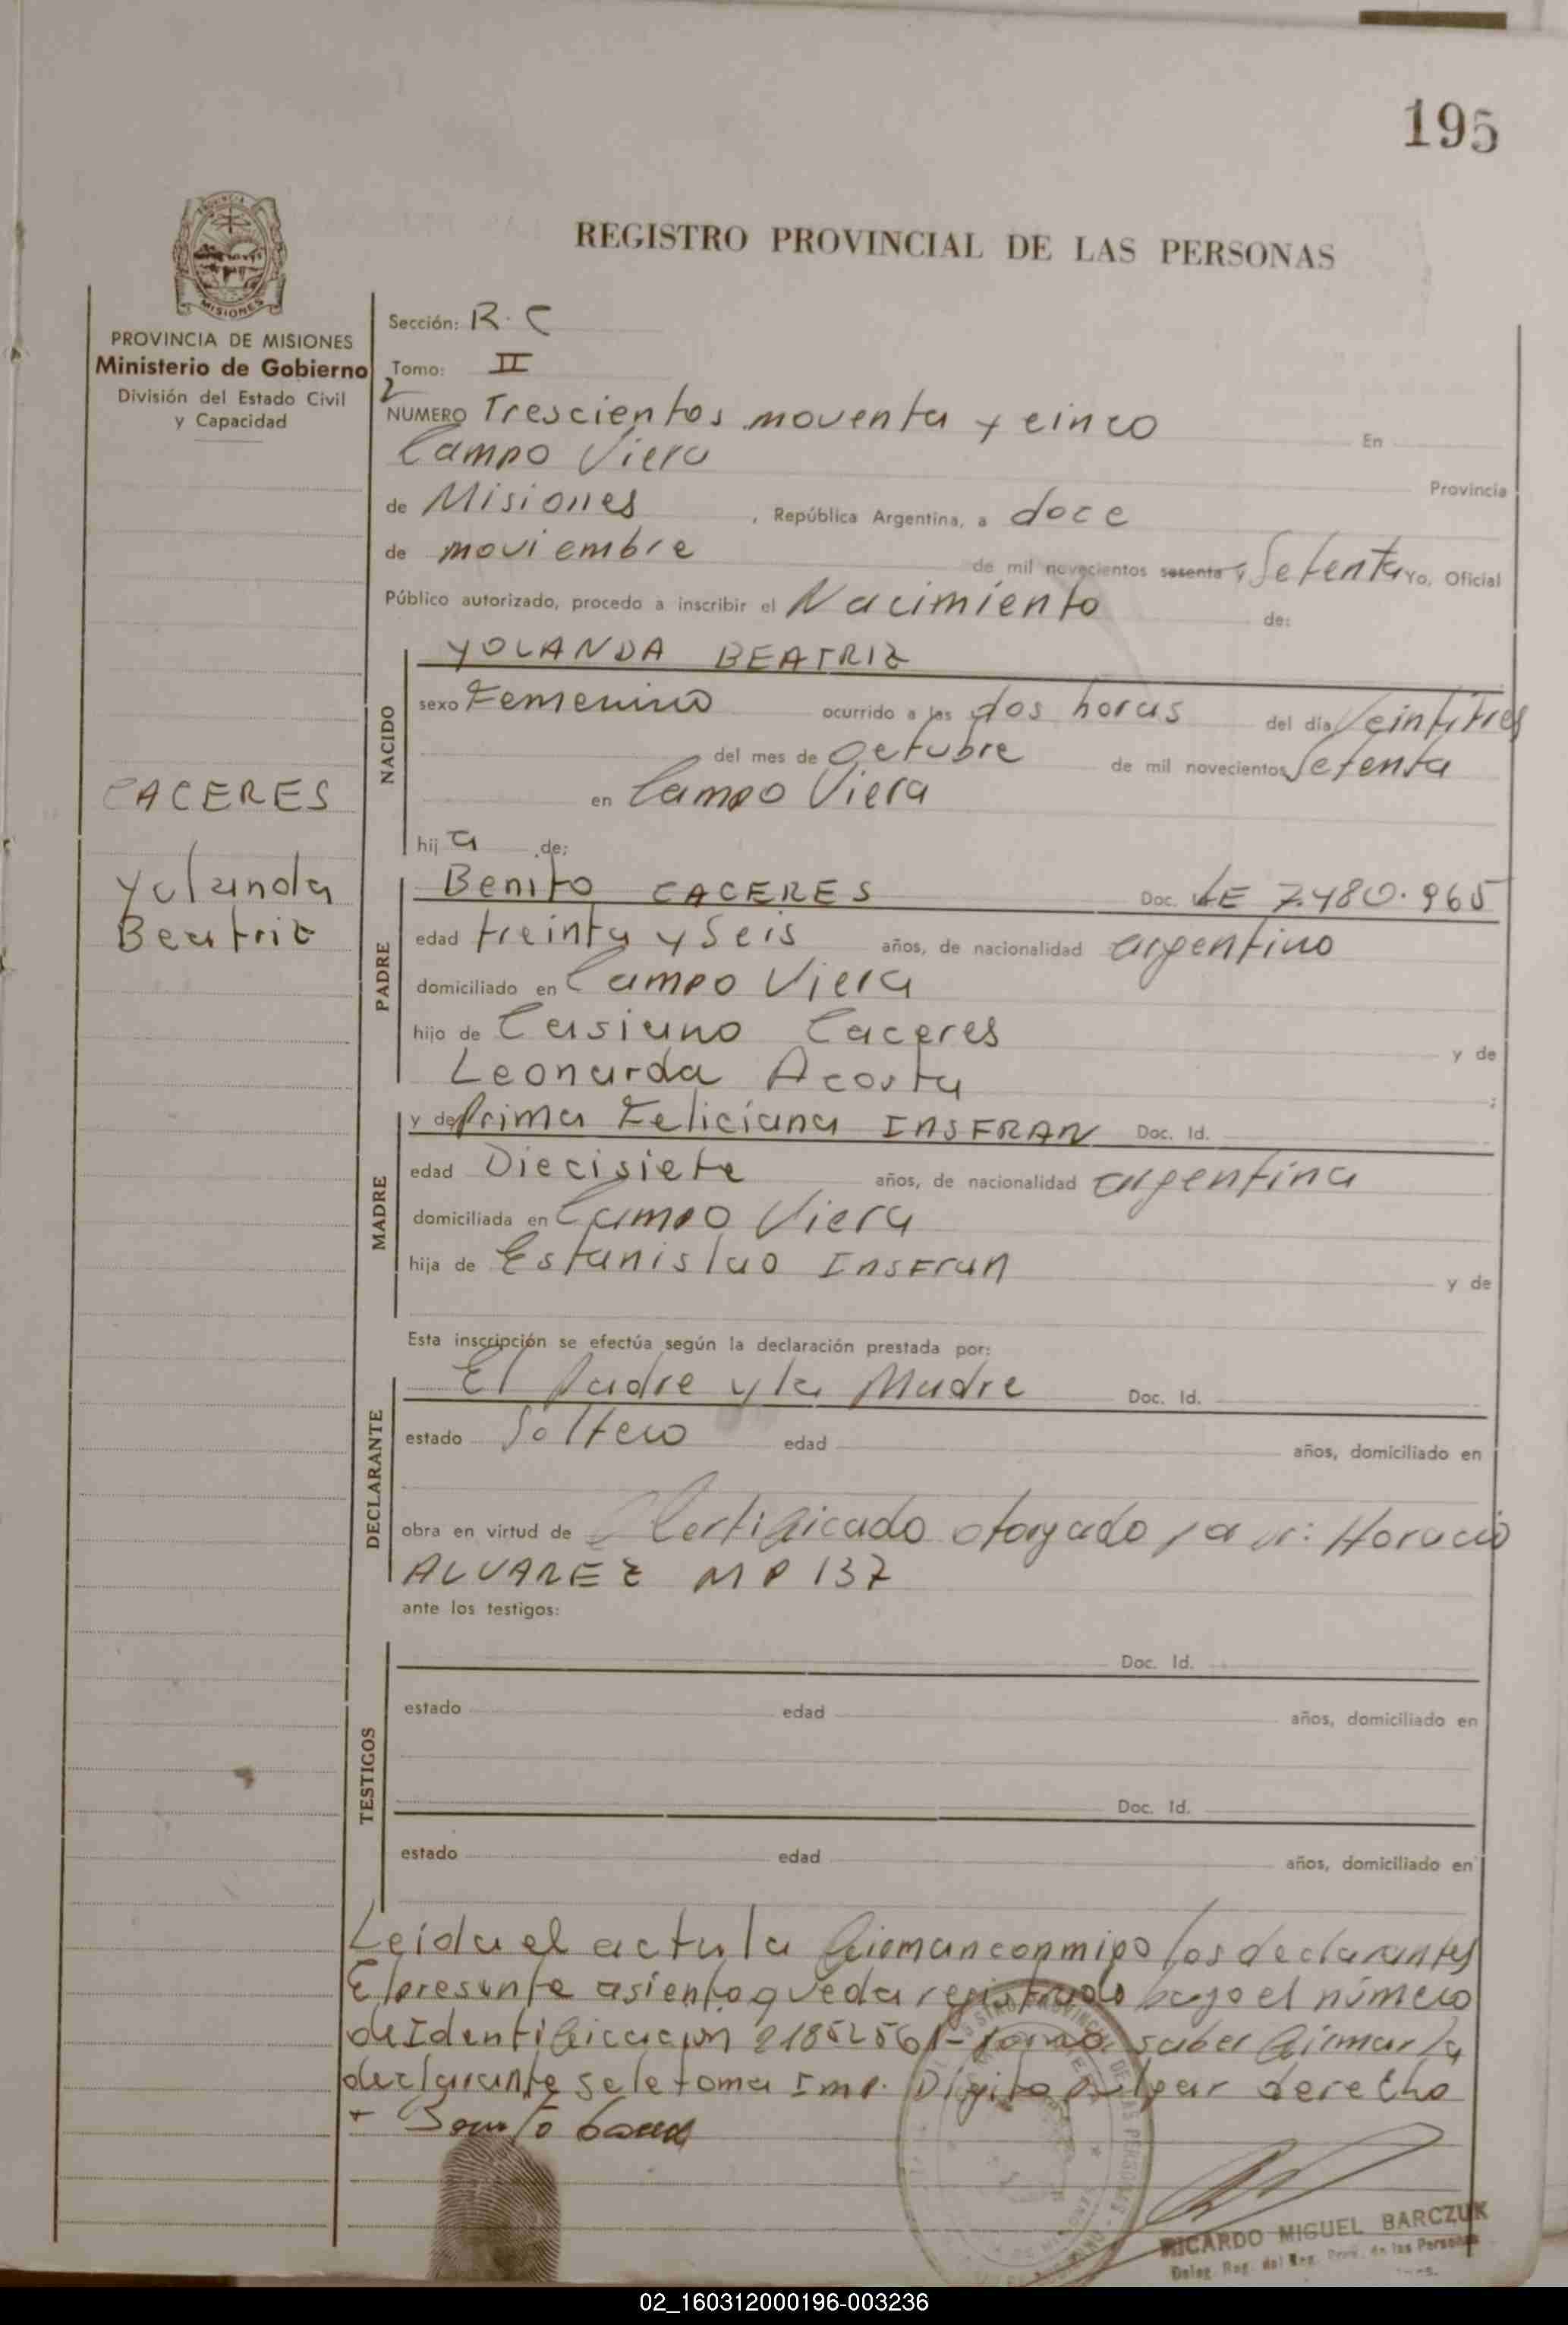 195
REGISTRO PROVINCIAL DE LAS PERSONAS
MISIONES
PROVINCIA DE MISIONES
Ministerio de Gobierno
División del Estado Civil
y Capacidad
CACERES
Yolanda
Beatriz
Sección: R. C
Tomo: II
NUMERO Trescientos noventa y cinco En
Campo Viera Provincia
de Misiones, República Argentina, a doce
de noviembre de mil novecientos sesenta y Setenta Yo, Oficial
Público autorizado, procedo a inscribir el Nacimiento de:
NACIDO
YOLANDA BEATRIZ
sexo Femenino ocurrido a las dos horas del día Veintitres
del mes de Octubre de mil novecientos Setenta
en Campo Viera
hija de:
PADRE
Benito CACERES Doc. LE 7.480.965
edad treinta y Seis años, de nacionalidad argentino
domiciliado en Campo Viera
hijo de Casiano Caceres y de
Leonarda Acosta ;
MADRE
y de Prima Feliciana INSFRAN Doc. Id.
edad Diecisiete años, de nacionalidad argentina
domiciliada en Campo Viera
hija de Estanislao Insfran y de
Esta inscripción se efectúa según la declaración prestada por:
DECLARANTE
El Padre y la Madre Doc. Id.
estado Soltero edad años, domiciliado en
obra en virtud de Certificado otorgado Horacio
ALVAREZ MP 137
ante los testigos:
TESTIGOS
Doc. Id.
estado edad años, domiciliado en
Doc. Id.
estado edad años, domiciliado en
Leida el acta la firman conmigo los declarantes
El presente asiento queda registrado bajo el número
de Identificacion saber firmar la
declarante se le toma Imp. Digito pulgar derecho
RICARDO MIGUEL BARCZUK
02_160312000196-003236